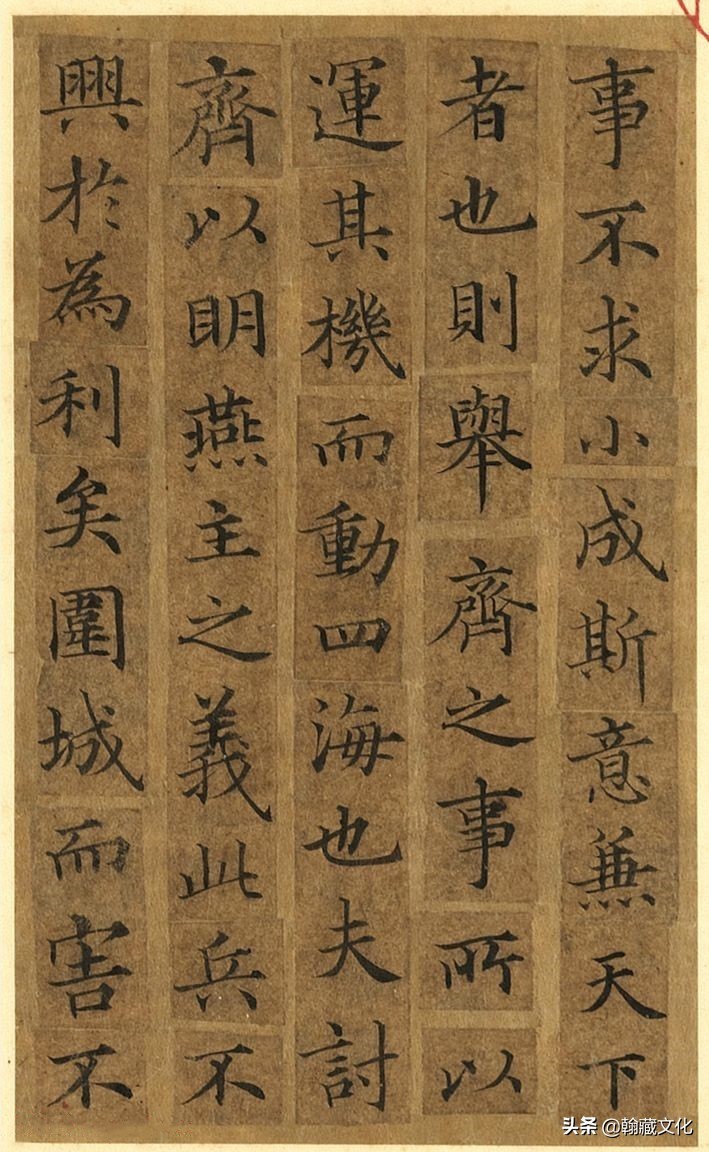 事不求小成斯意兼天下
者也則舉齊之事所以
運其機而動四海也夫討
齊以明燕主之義此兵不
興於為利矣圍城而害不
头条 @翰藏文化